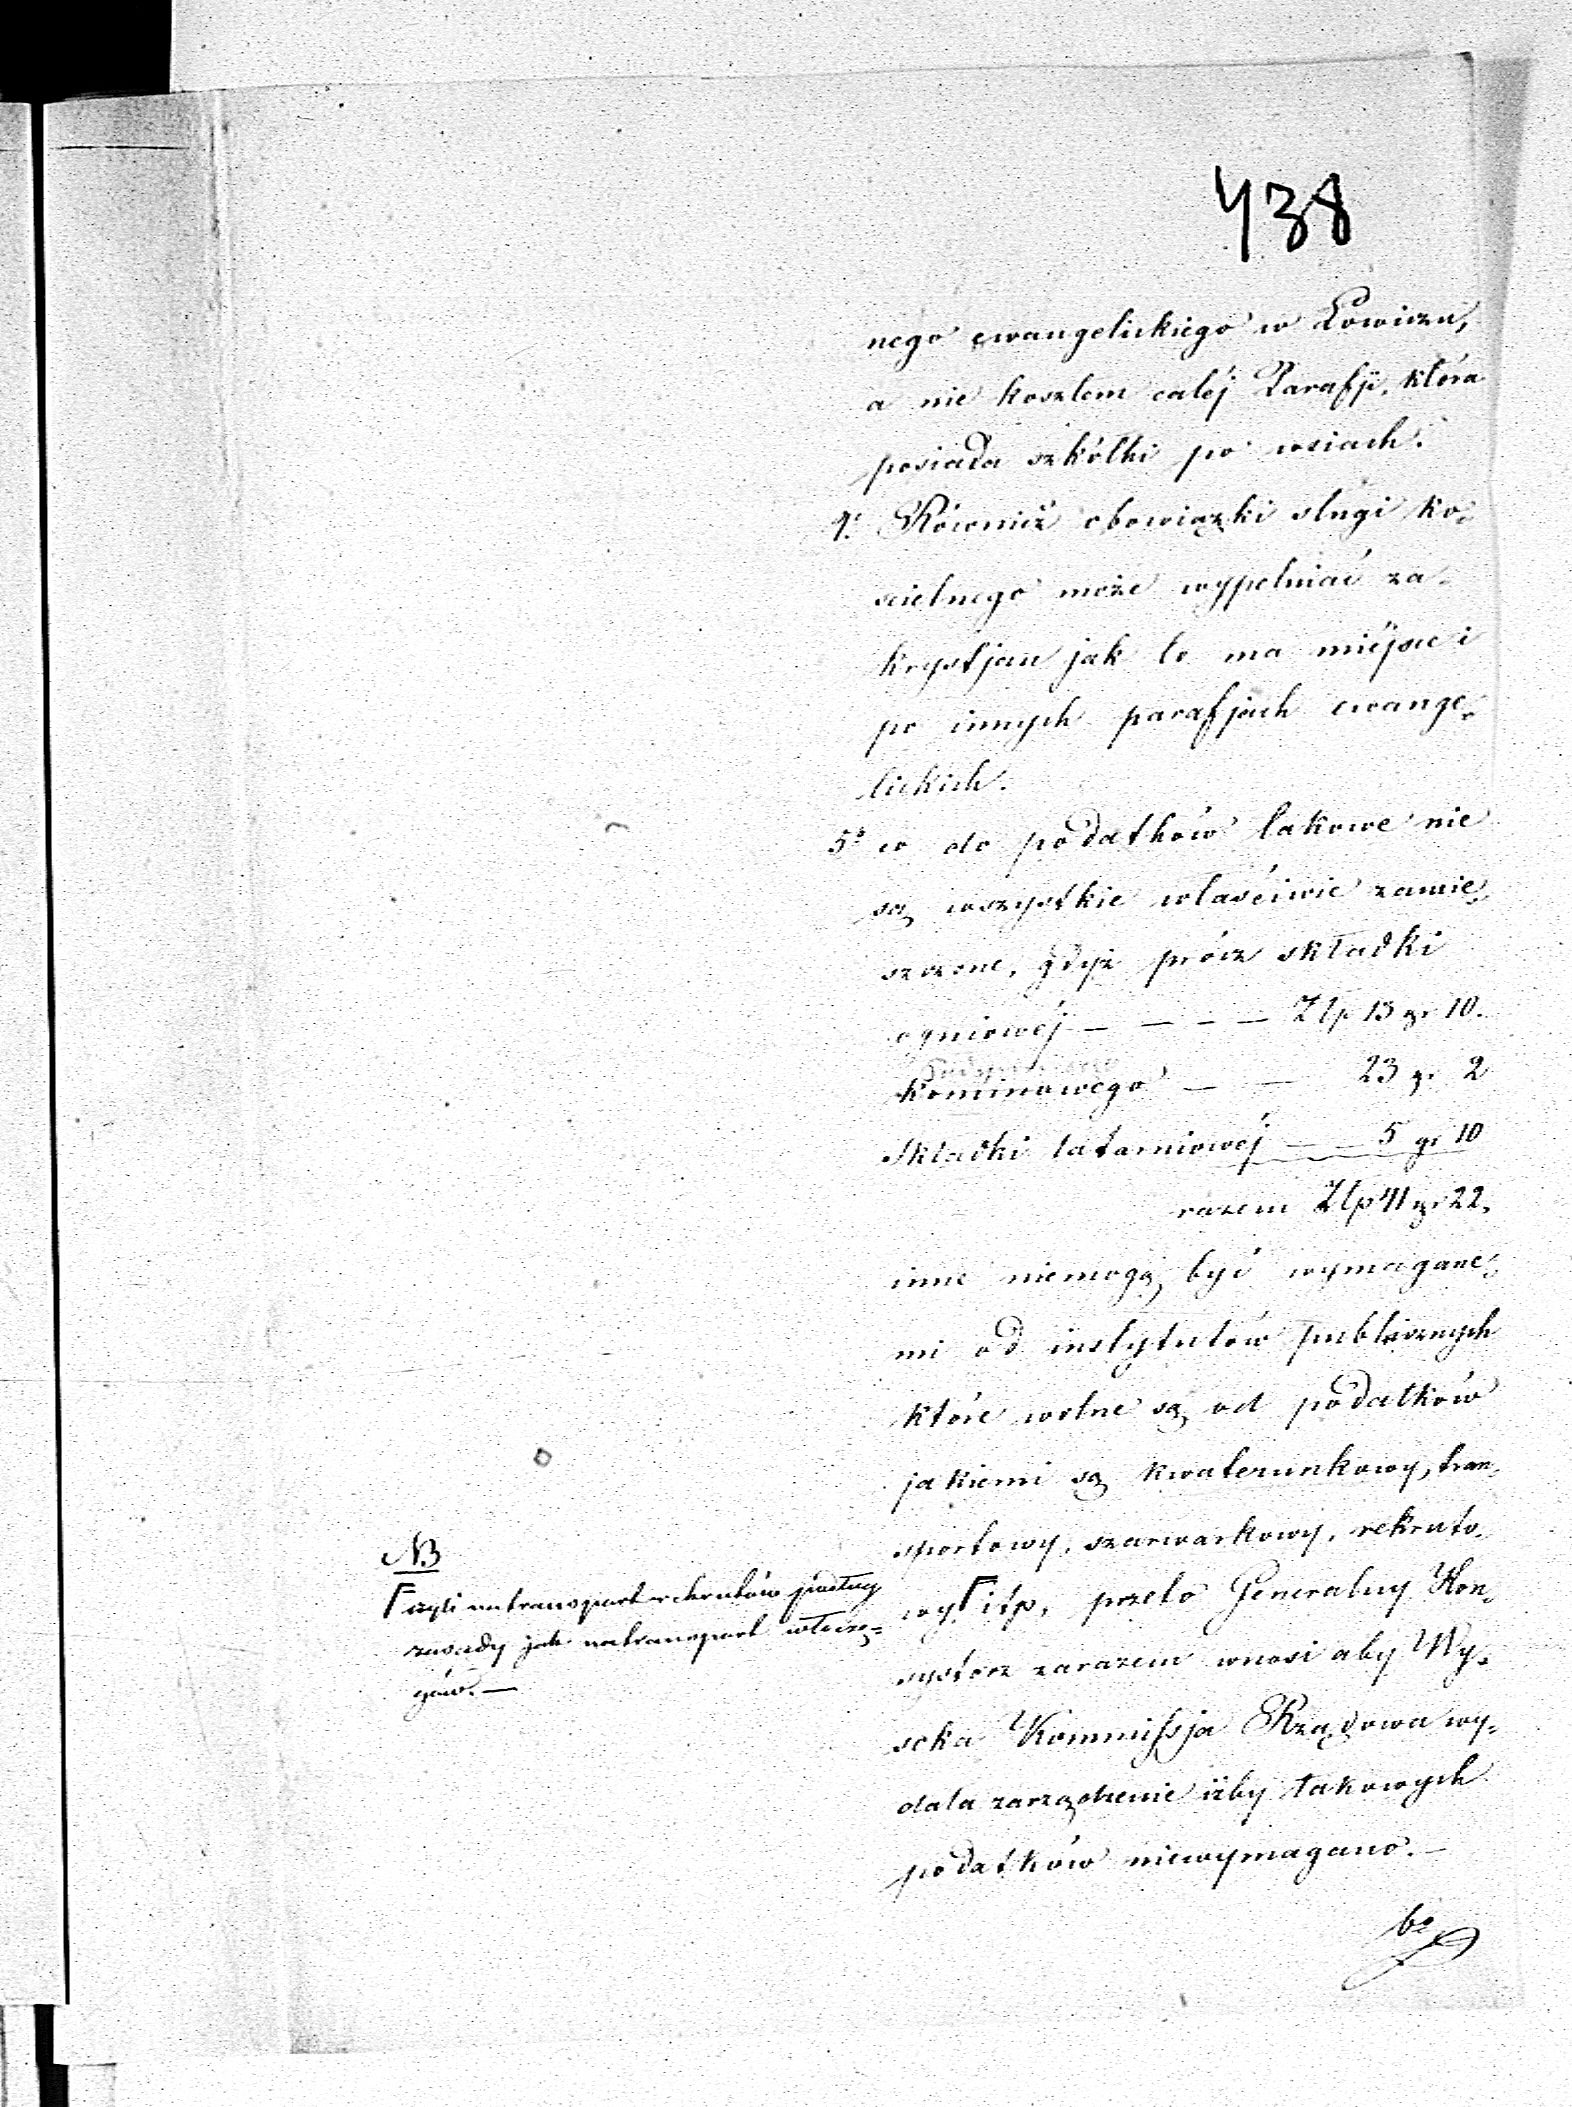 438
nego ewangelickiego w Łowiczu,
a nie kosztem całéj Parafji, która
posiada szkółki po wsiach.
4. Równiéż obowiązki sługi ko-
scielnego może wypełniać za-
krystjan jak to ma miéjsce i
po innych parafjach ewange-
lickich.
5° co do podatków takowe nie
są wszystkie właściwie zamie-
szczone, gdyż prócz składki
ogniowéj — — — — Zlp 13 gr 10.
Kominowego — — 23 gr 2
Składki latarniowéj — — 5 gr 10
razem Zlp 41 gr 22,
inne niemogą być wymagane-
mi od instytutów publicznych
które wolne są od podatków
jakiemi są kwaterunkowy, tran-
sportowy, szarwarkowy, rekruto-
wy Γ itp, przeto Generalny Kon-
systorz zarazem wnosi aby Wy-
soka Kommissja Rządowa wy-
dała zarządzenie iżby takowych
podatków niewymagano. —
NB
Γ czyli na transport rekrutów podług
zasady jak na transport włóczę-
gów. —